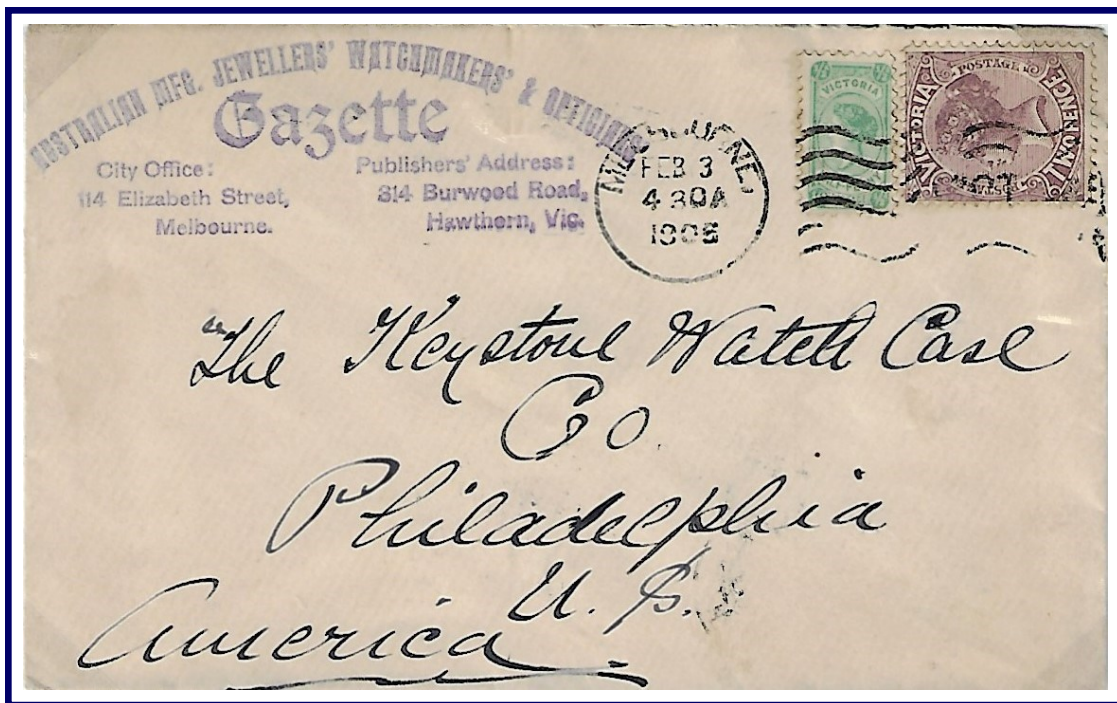 AUSTRALIAN MFG. JEWELLERS' WATCHMAKERS' & OPTICIANS
Gazette
City Office:
114 Elizabeth Street,
Melbourne.
Publishers' Address:
314 Burwood Road,
Hawthorn, Vic.
MELBOURNE.
FEB 3
4 30A
½ VICTORIA ½
VICTORIA
POSTAGE
The Keystone Watch Case
Co
Philadelphia
U. S.
America